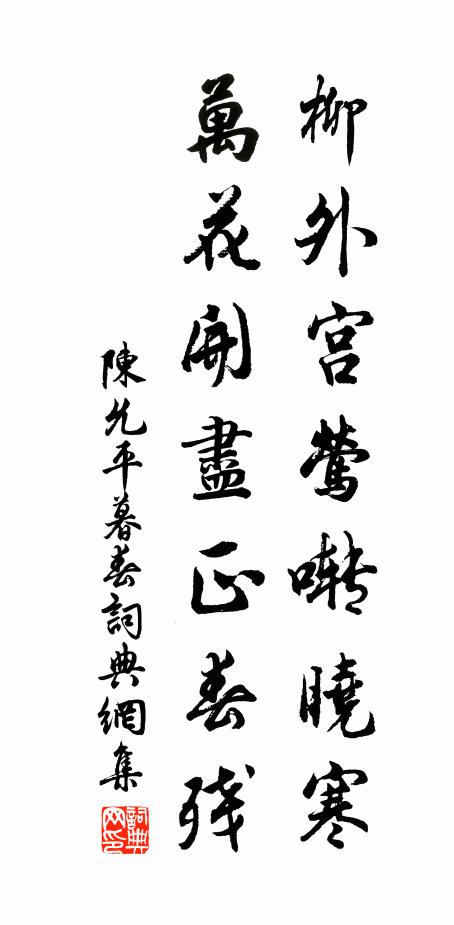 柳外宫莺啭曉寒
萬花開盡正春殘
陳允平暮春詞典網集
詞典网印